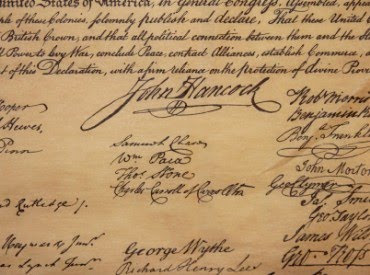 United States of America, in General Congress, Assembled, appea
ple of these Colonies, solemnly publish and declare, That these United
British Crown, and that all political connection between them and the St
Power to levy War, conclude Peace, contract Alliances, establish Commerce, a
of this Declaration, with a firm reliance on the protection of divine Provi
John Hancock
ooper
Hewes,
Penn
Samuel Chase
Wm Paca
Thos Stone
Charles Carroll of Carrollton
Robt Morris
Benjamin R
Benj Frankli
John Morton
Geo Clymer
Jas Smi
Geo Taylor
James Wils
Geo Ross
Rutledge
Heyward Junr
Lynch Junr
George Wythe
Richard Henry Lee